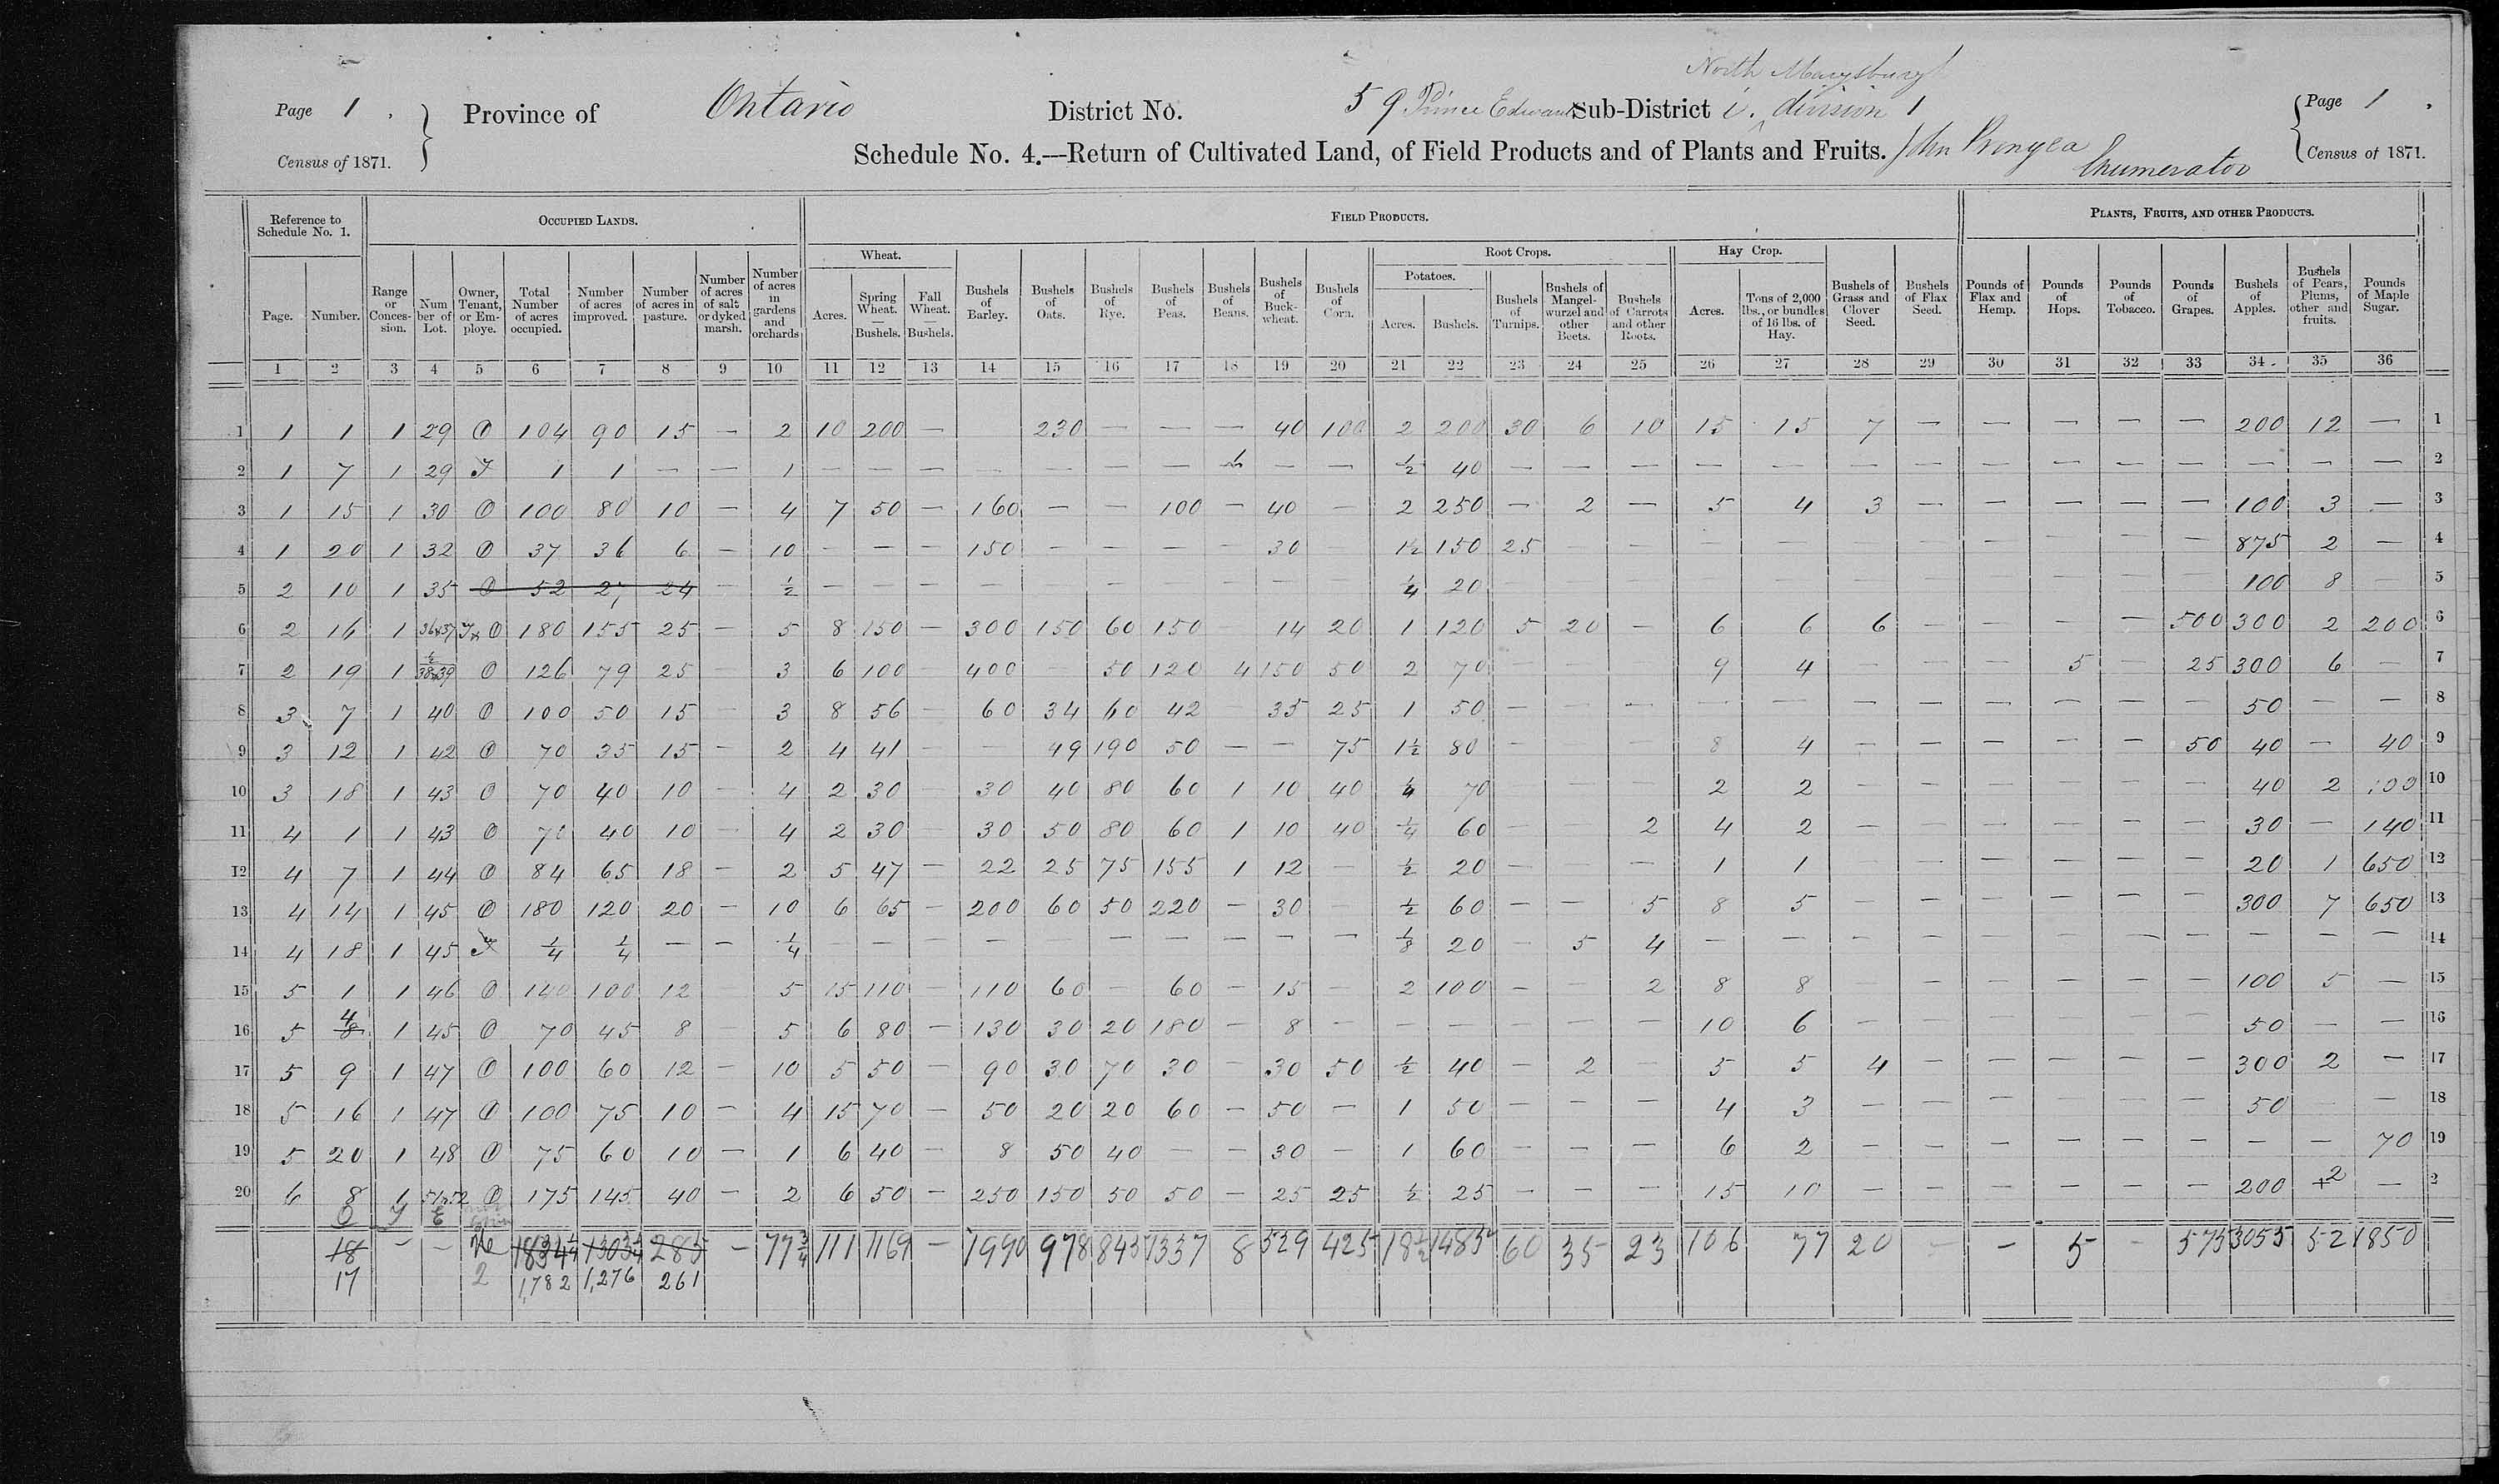 North Marysburg
Page 1. Province of Ontario District No. 59 Prince Edward Sub-District i. division 1 Page 1.
Census of 1871. Schedule No. 4.—Return of Cultivated Land, of Field Products and of Plants and Fruits. John Enumerator Census of 1871.
Reference to Schedule No. 1. OCCUPIED LANDS. FIELD PRODUCTS. PLANTS, FRUITS, AND OTHER PRODUCTS.
Wheat. Root Crops. Hay Crop.
Potatoes.
Page. Number. Range or Concession. Num ber of Lot. Owner, Tenant, or Em- ploye. Total Number of acres occupied. Number of acres improved. Number of acres in pasture. Number of acres of salt or dyked marsh. Number of acres in gardens and orchards Acres. Spring Wheat. — Bushels. Fall Wheat. — Bushels. Bushels of Barley. Bushels of Oats. Bushels of Rye. Bushels of Peas. Bushels of Beans. Bushels of Buck- wheat. Bushels of Corn. Acres. Bushels. Bushels of Turnips. Bushels of Mangel- wurzel and other Beets. Bushels of Carrots and other Roots. Acres. Tons of 2,000 lbs., or bundles of 16 lbs. of Hay. Bushels of Grass and Clover Seed. Bushels of Flax Seed. Pounds of Flax and Hemp. Pounds of Hops. Pounds of Tobacco. Pounds of Grapes. Bushels of Apples. Bushels of Pears, Plums, other and fruits. Pounds of Maple Sugar.
1 2 3 4 5 6 7 8 9 10 11 12 13 14 15 16 17 18 19 20 21 22 23 24 25 26 27 28 29 30 31 32 33 34 35 36
1 1 1 1 29 O 104 90 15 — 2 10 200 — 230 — — — 40 100 2 200 30 6 10 15 15 7 — — — — — 200 12 — 1
2 1 7 1 29 T 1 1 — — 1 — — — — — — — — — ½ 40 — — — — — — — — — — — — — — 2
3 1 15 1 30 O 100 80 10 — 4 7 50 — 160 — — 100 — 40 — 2 250 — 2 — 5 4 3 — — — — — 100 3 — 3
4 1 20 1 32 O 37 36 6 — 10 — — — 150 — — — — 30 1½ 150 25 — — — — — — — — — 875 2 — 4
5 2 10 1 35 O 52 27 24 — ½ — — — — — — — — — ¼ 20 — — — — — — — — — — — 100 8 — 5
6 2 16 1 36x37 Tx O 180 155 25 — 5 8 150 — 300 150 60 150 14 20 1 120 5 20 — 6 6 6 — — — — 500 300 2 200 6
7 2 19 1 ½ 38x39 O 126 79 25 — 3 6 100 — 400 — 50 120 4 150 50 2 70 — — — 9 4 — — — 5 — 25 300 6 — 7
8 3 7 1 40 O 100 50 15 — 3 8 56 — 60 34 60 42 35 25 1 50 — — — — — — — — — — — 50 — — 8
9 3 12 1 42 O 70 35 15 — 2 4 41 — — 49 190 50 — — 75 1½ 80 — — — 8 4 — — — — — 50 40 — 40 9
10 3 18 1 43 O 70 40 10 — 4 2 30 — 30 40 80 60 1 10 40 ¼ 70 — — — 2 2 — — — — — — 40 2 100 10
11 4 1 1 43 O 70 40 10 — 4 2 30 30 50 80 60 1 10 40 ¼ 60 — — 2 4 2 — — — — — — 30 — 140 11
12 4 7 1 44 O 84 65 18 — 2 5 47 — 22 25 75 155 1 12 — ½ 20 — — — 1 1 — — — — — — 20 1 650 12
13 4 14 1 45 O 180 120 20 — 10 6 65 — 200 60 50 220 — 30 — ½ 60 — — 5 8 5 — — — — — — 300 7 650 13
14 4 18 1 45 T ¼ ¼ — — ¼ — — — — — — — — — — ⅛ 20 — 5 4 — — — — — — — — — — — 14
15 5 1 1 46 O 140 100 12 — 5 15 110 — 110 60 — 60 — 15 — 2 100 — — 2 8 8 — — — — — — 100 5 — 15
16 5 4 8 1 45 O 70 45 8 5 6 80 — 130 30 20 180 — 8 — — — — — — 10 6 — — — — — — 50 — — 16
17 5 9 1 47 O 100 60 12 — 10 5 50 — 90 30 70 30 — 30 50 ½ 40 — 2 — 5 5 4 — — — — — 300 2 — 17
18 5 16 1 47 O 100 75 10 — 4 15 70 — 50 20 20 60 — 50 — 1 50 — — — 4 3 — — — — — — 50 — — 18
19 5 20 1 48 O 75 60 10 — 1 6 40 — 8 50 40 — — 30 — 1 60 — — — 6 2 — — — — — — — — 70 19
20 6 8 1 51x52 O 175 145 40 — 2 6 50 — 250 150 50 50 — 25 25 ½ 25 — — — 15 10 — — — — — — 200 +2 — 2
18 — — 1834¼ 1303¼ 285 — 77¾ 111 1169 — 1990 978 845 1337 8 529 425 18½ 1485 60 35 23 106 77 20 — — 5 — 575 3055 52 1850
17 2 1,782 1,276 261